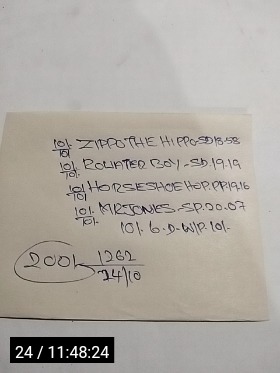 10/. 10/. ZIPPOTHE HIPPO-SD18-58
10/. 10/. ROUATER BOY-SD.19.19
10/. 10/. HORSESHOE HOP.PP.19.16
10/. 10/. MRJONES-SP.20-07
10/. 6-D-W/P.10/-
2001 1262
24/10
24 / 11:48:24